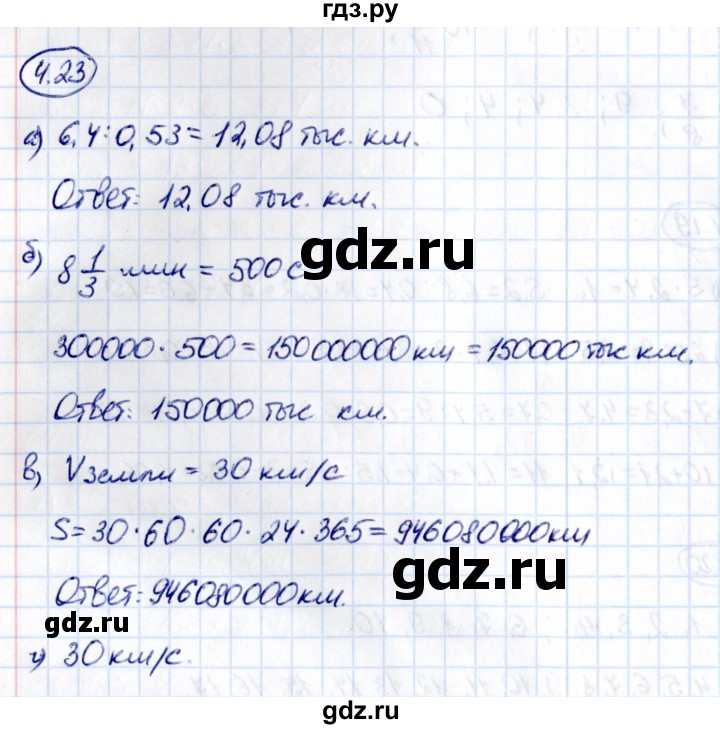 гдз.ру
4.23
а) 6,4 : 0,53 = 12,08 тыс. км.
Ответ: 12,08 тыс. км.
б) 8 1/3 мин = 500 с
gdz.ru
300000 · 500 = 150000000 км = 150000 тыс км.
Ответ: 150000 тыс км.
в) Vземли = 30 км/с
S = 30 · 60 · 60 · 24 · 365 = 946080000 км
gdz.ru
Ответ: 946080000 км.
gdz.ru
г) 30 км/с.
gdz.ru